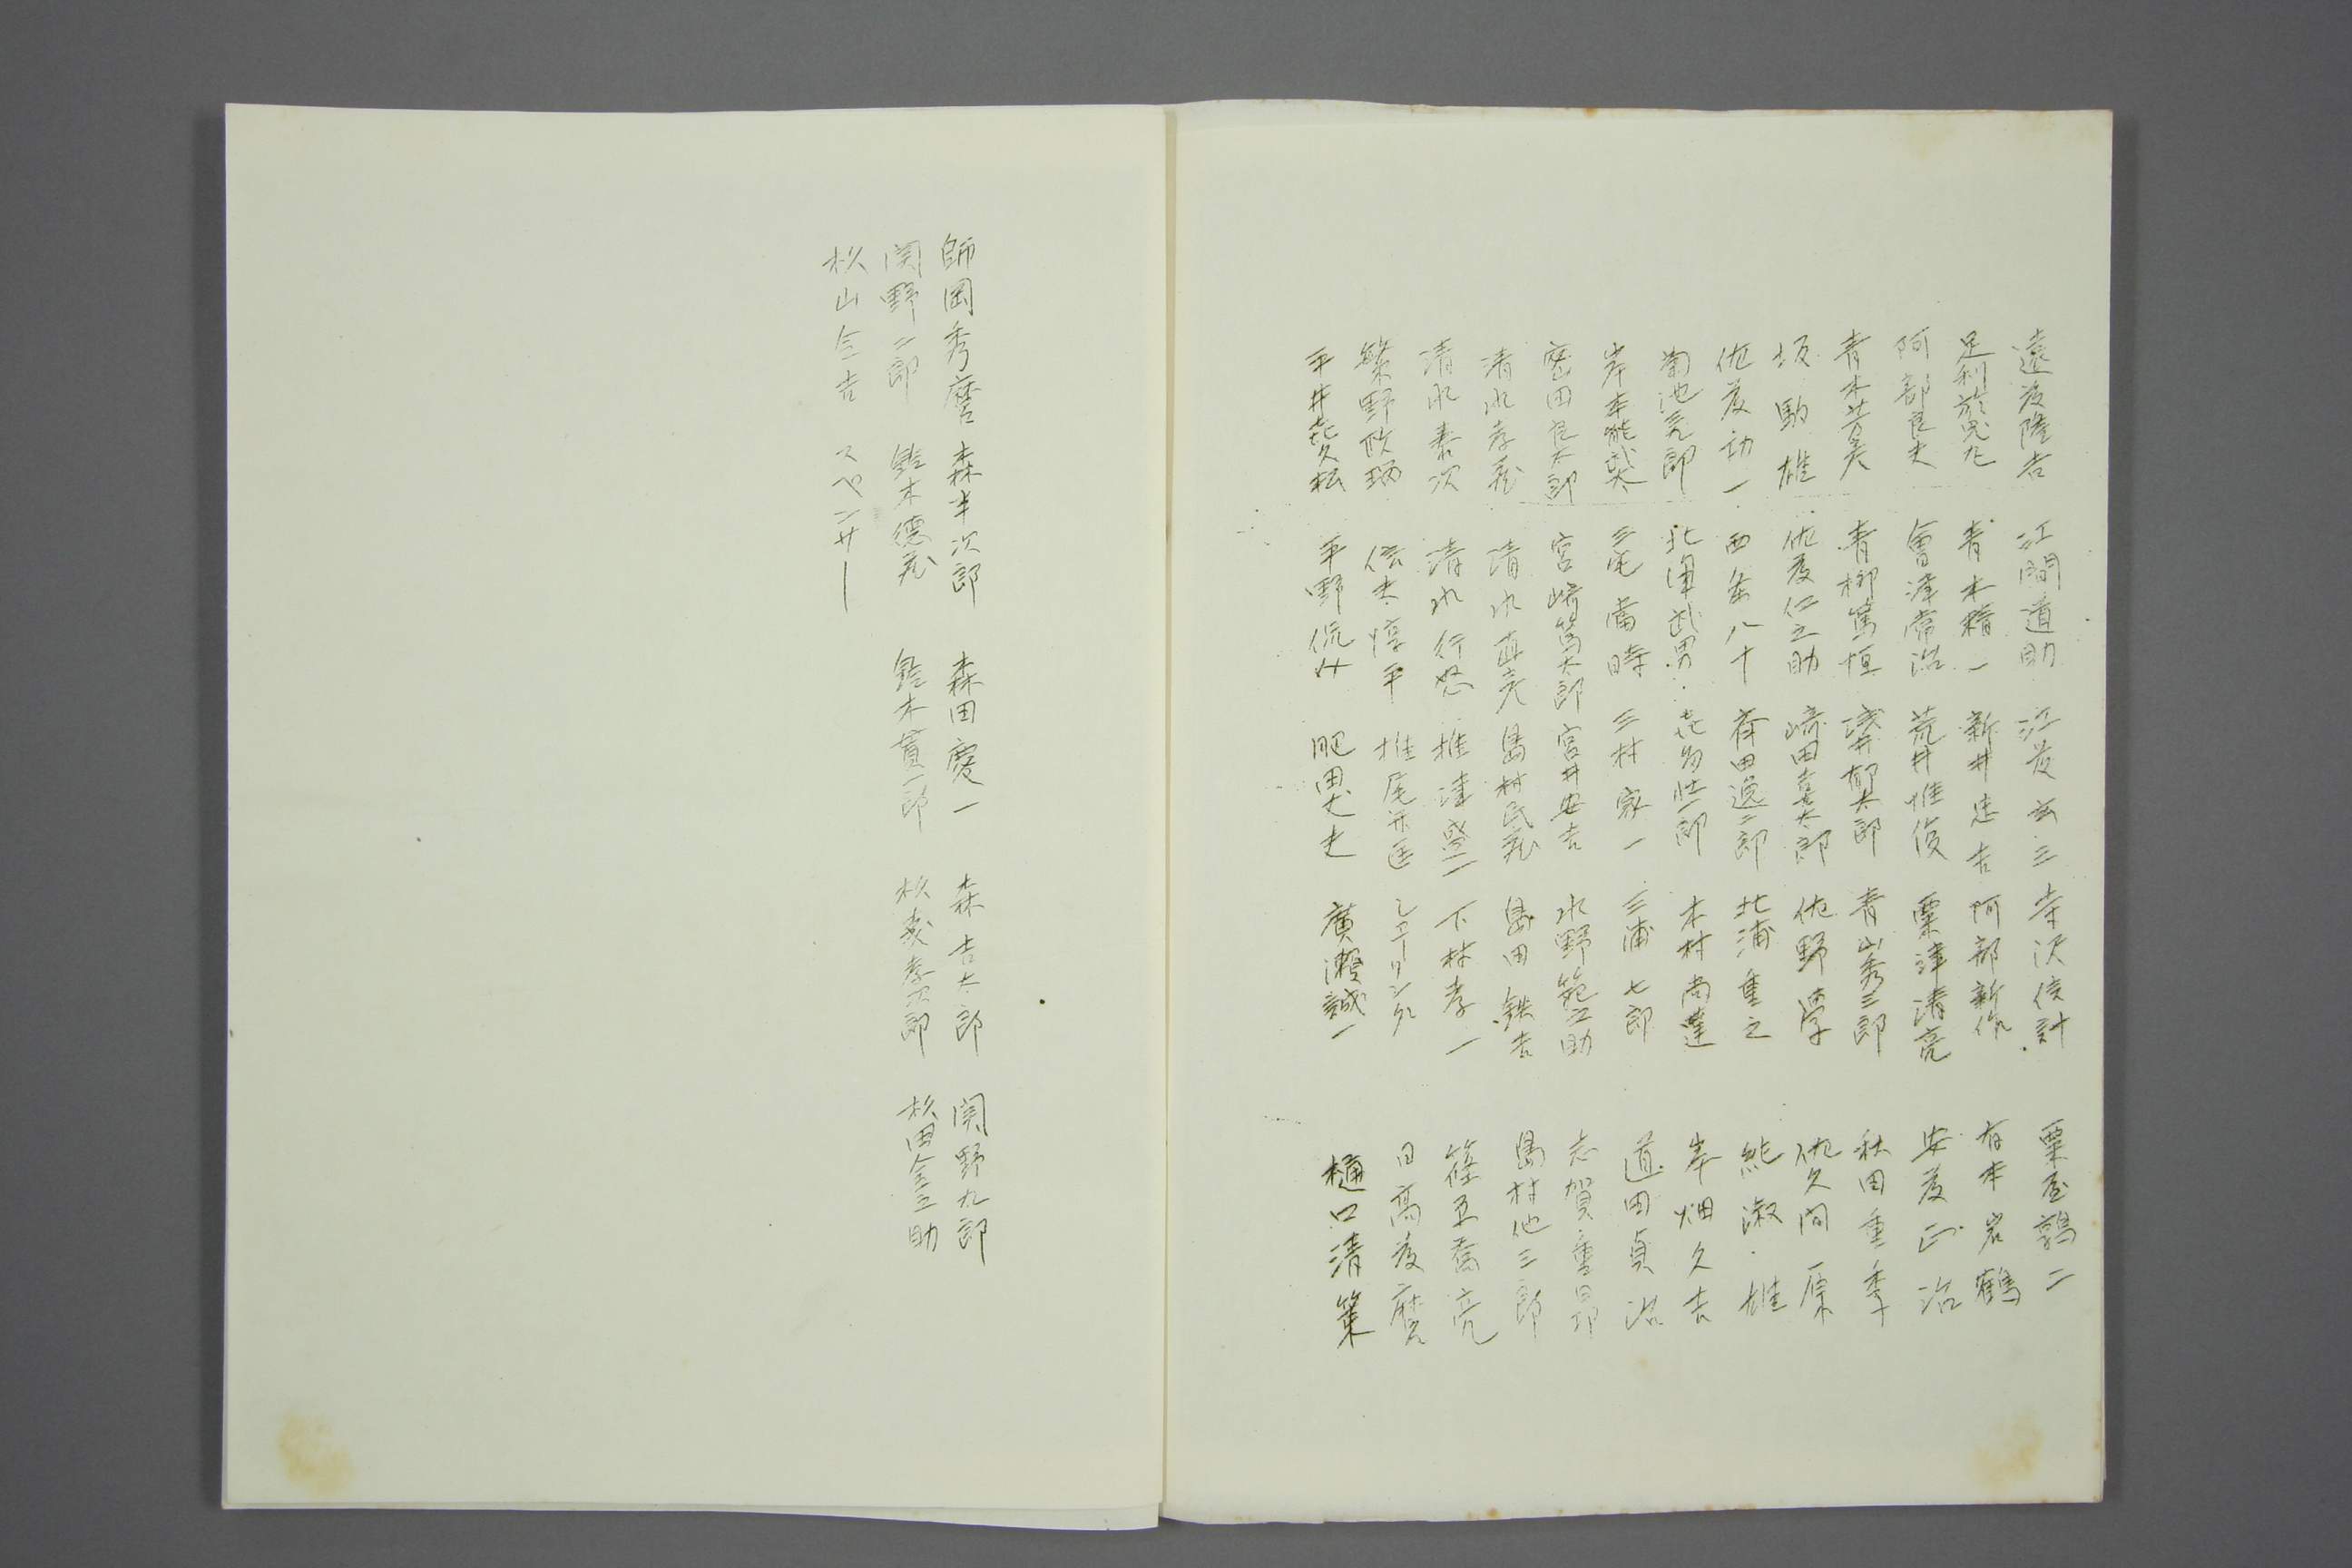 遠藤隆吉 江間道助 江藤 三 寺沢信計 粟屋 二
足利 九 青木精一 新井忠吉 阿部新作 有本岩鶴
阿部良夫 會津常治 荒井惟俊 粟津清亮 安藤正治
青木芳美 青柳篤恒 淺井郁太郎 青山秀三郎 秋田重季
坂 駒雄 佐藤仁之助 嵜田喜太郎 佐野 学 佐久間 原
佐藤功一 西条八十 斉田 二郎 北浦重之 純淑 雄
菊池 郎 北澤武男 喜多壮一郎 木村尚達 岸畑久吉
岸本能武太 三宅當時 三村家一 三浦七郎 道田貞治
密田良太郎 宮嵜篤太郎 宮井安吉 水野 之助 志賀重昂
清水孝蔵 清水直 島村民蔵 島田鉄吉 島村他三郎
清水泰次 清水行 椎津盛一 下村孝一 篠 喬亮
繁野政瑀 信夫惇平 椎尾 匡 日高 麿
平井喜久松 平野侃 肥田 夫 廣瀬誠一 樋口清策
師岡秀麿 森半次郎 森田慶一 森吉太郎 関野九郎
関野二郎 鈴木徳蔵 鈴木貫一郎 杉 孝次郎 杉田金之助
杉山令吉 スペンサー